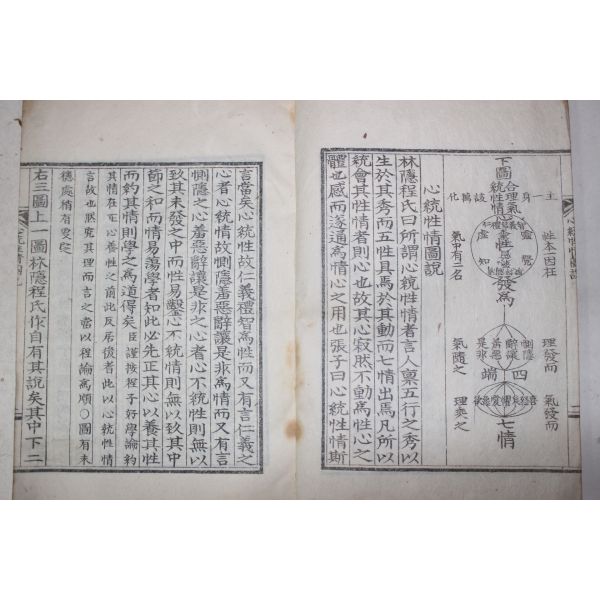 下圖
合理氣
統性情
主一身
該萬化
虛靈
知覺
仁義禮智
性本因在
氣中有二名
發爲
理發而
氣隨之
惻隱
辭讓
羞惡
是非
四端
氣發而
理乘之
七情
心統性情圖說
林隱程氏曰所謂心統性情者言人稟五行之秀以
生於其秀而五性具焉於其動而七情出焉凡所以
統會其性情者則心也故其心寂然不動爲性心之
體也感而遂通爲情心之用也張子曰心統性情斯
言當矣心統性故仁義禮智爲性而又有言仁義之
心者心統情故惻隱羞惡辭讓是非爲情而又有言
惻隱之心羞惡辭讓是非之心者心不統性則無以
致其未發之中而性易鑿心不統情則無以致其中
節之和而情易蕩學者知此必先正其心以養其性
而約其情則學之爲道得矣臣謹按程子好學論約
其情在正心養性之前此反居後者此以心統性情
言故也然究其理而言之當以程論爲順○圖有未
穩處稍有更定
右三圖上一圖林隱程氏作自有其說矣其中下二